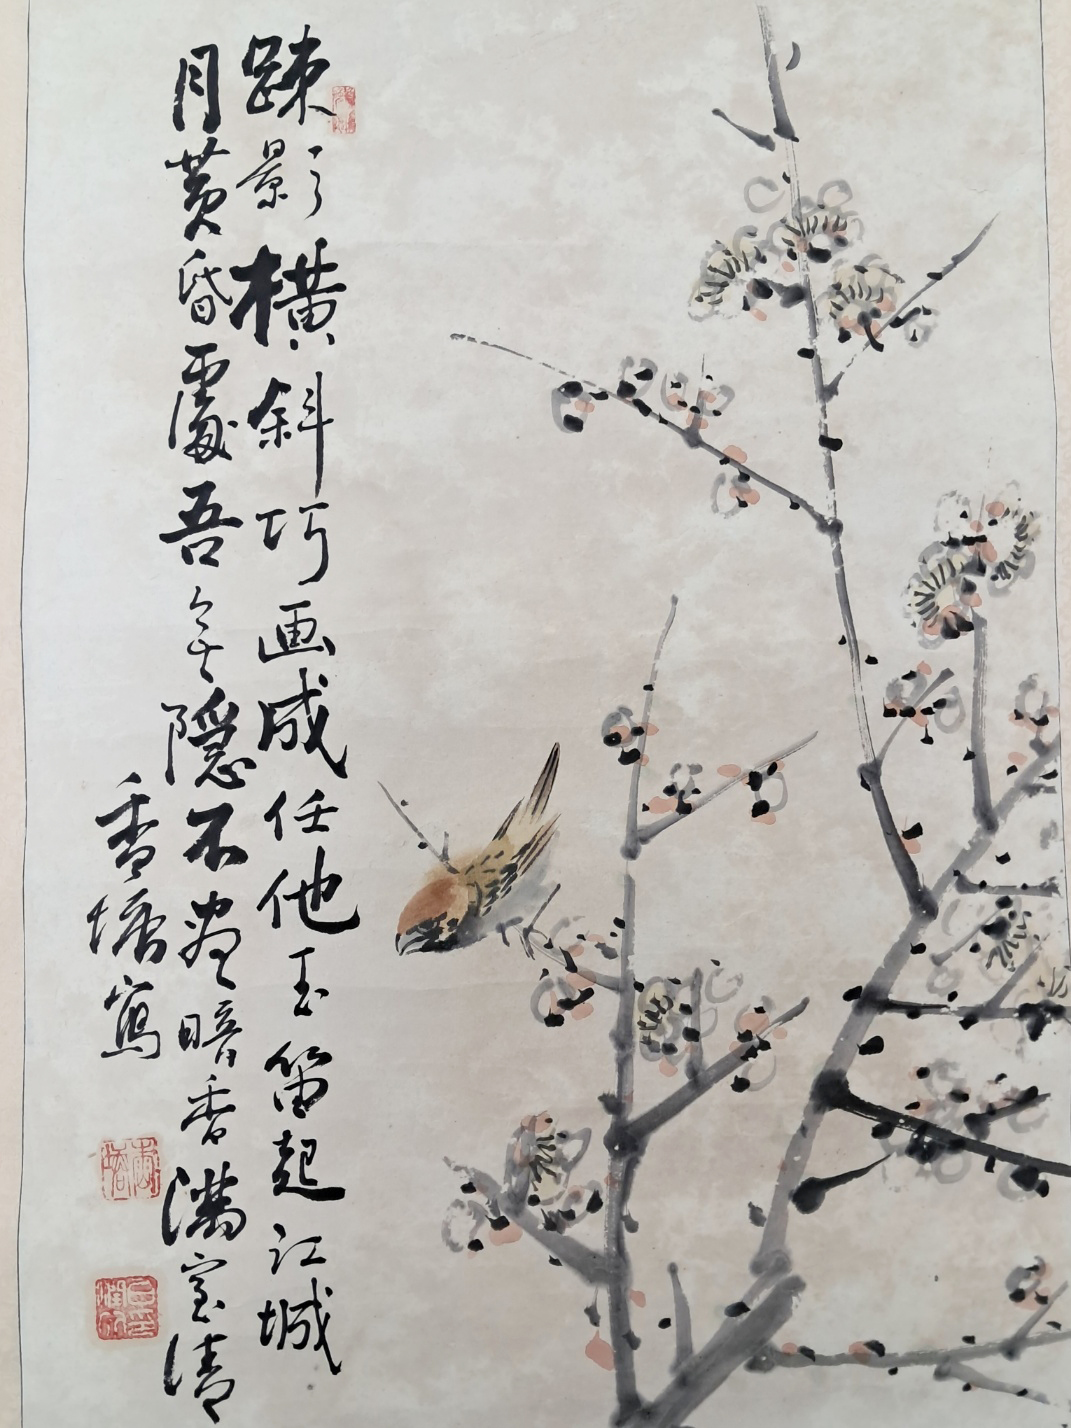 踈影橫斜巧画成任他玉笛起江城
月黄昏處吾 隱不盡暗香滿室清
香塘寫